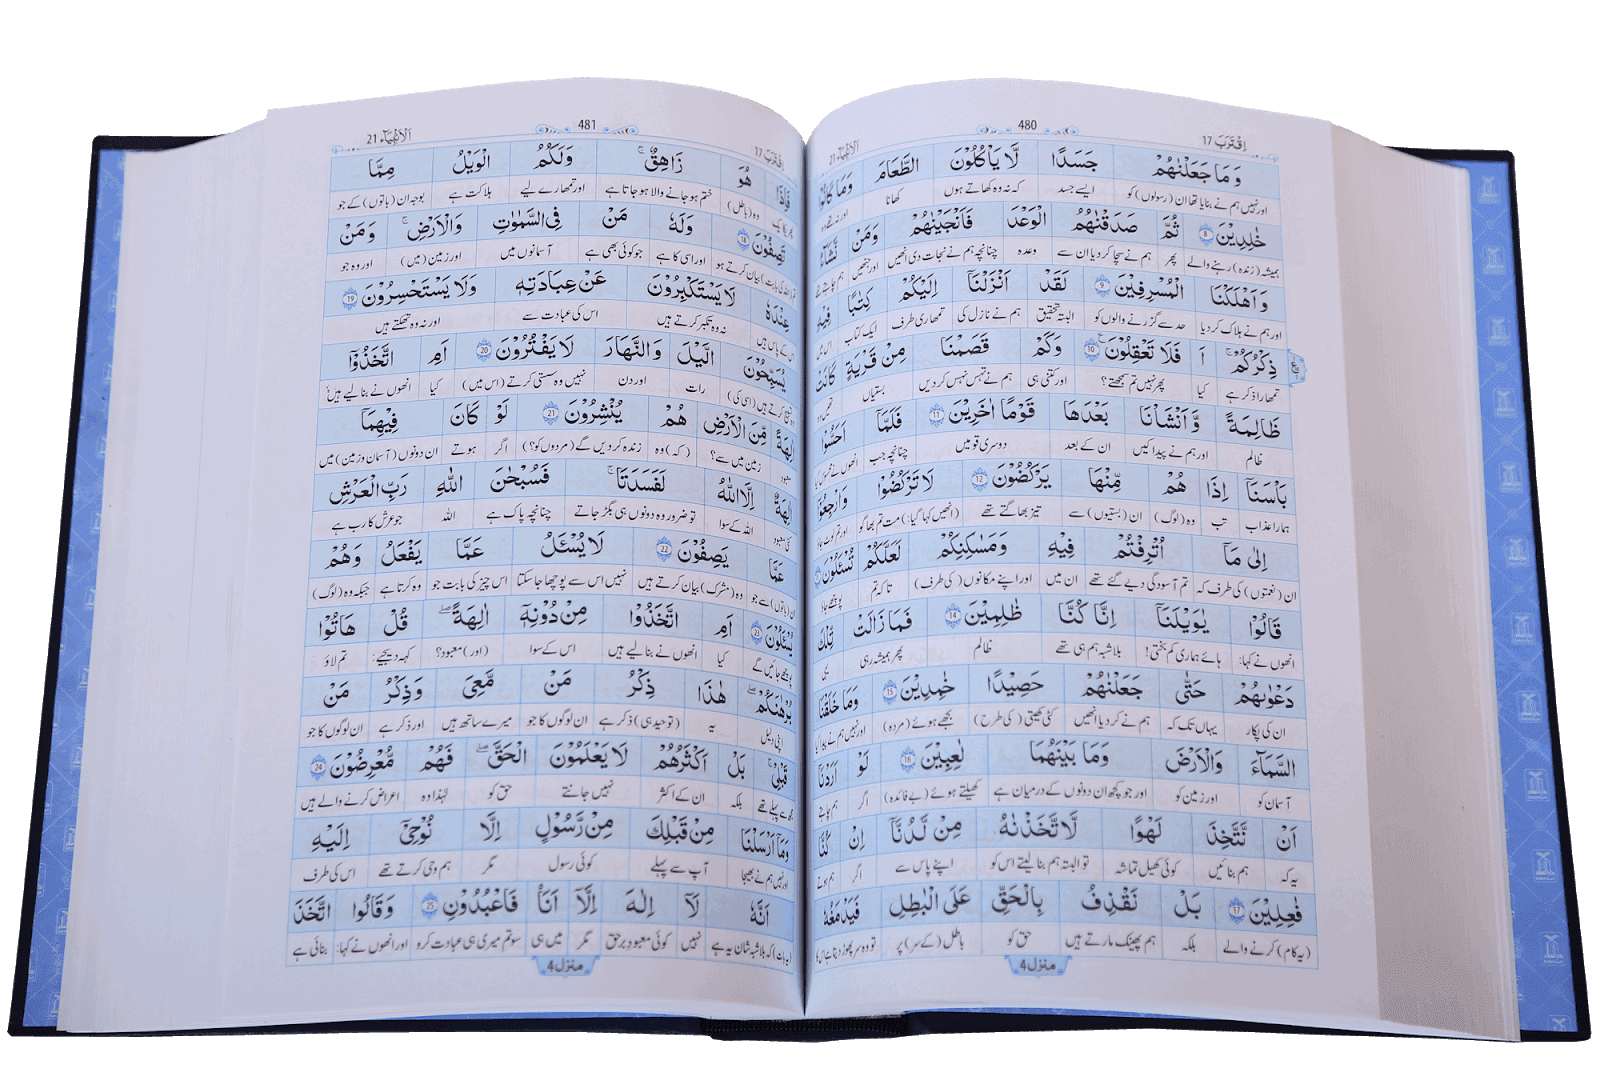 اِقْتَرَبَ 17 480 اَلْاَنْۢبِيَآء 21
وَمَا جَعَلْنٰهُمْ جَسَدًا لَّا يَاْكُلُوْنَ الطَّعَامَ وَمَا كَانُوْا
اور نہیں ہم نے بنایا تھا ان (رسولوں) کو ایسے جسد کہ نہ وہ کھاتے ہوں کھانا اور نہ تھے وہ
خٰلِدِيْنَ 8 ثُمَّ صَدَقْنٰهُمُ الْوَعْدَ فَاَنْجَيْنٰهُمْ وَمَنْ نَّشَآءُ
ہمیشہ (زندہ) رہنے والے پھر ہم نے سچا کر دیا ان سے وعدہ چنانچہ ہم نے نجات دی انھیں اور جنھیں ہم چاہتے تھے
وَاَهْلَكْنَا الْمُسْرِفِيْنَ 9 لَقَدْ اَنْزَلْنَآ اِلَيْكُمْ كِتٰبًا فِيْهِ
اور ہم نے ہلاک کر دیا حد سے گزرنے والوں کو البتہ تحقیق ہم نے نازل کی تمھاری طرف ایک کتاب اس میں
ذِكْرُكُمْ ۭ اَ فَلَا تَعْقِلُوْنَ 10 وَكَمْ قَصَمْنَا مِنْ قَرْيَةٍ كَانَتْ
تمھارا ذکر ہے کیا پھر نہیں تم سمجھتے؟ اور کتنی ہی ہم نے تہس نہس کر دیں بستیاں تھیں وہ
ظَالِمَةً وَّاَنْشَاْنَا بَعْدَهَا قَوْمًا اٰخَرِيْنَ 11 فَلَمَّآ اَحَسُّوْا
ظالم اور ہم نے پیدا کیں ان کے بعد دوسری قومیں چنانچہ جب انھوں نے محسوس کیا
بَاْسَنَآ اِذَا هُمْ مِّنْهَا يَرْكُضُوْنَ 12 لَا تَرْكُضُوْا وَارْجِعُوْٓا
ہمارا عذاب تب وہ (لوگ) ان (بستیوں) سے تیز بھاگتے تھے (انھیں کہا گیا:) مت تم بھاگو اور تم لوٹ جاؤ
اِلٰى مَآ اُتْرِفْتُمْ فِيْهِ وَمَسٰكِنِكُمْ لَعَلَّكُمْ تُسْئَلُوْنَ
ان (نعمتوں) کی طرف کہ تم آسودگی دیے گئے تھے ان میں اور اپنے مکانوں (کی طرف) تاکہ تم پوچھے جاؤ
قَالُوْا يٰوَيْلَنَآ اِنَّا كُنَّا ظٰلِمِيْنَ 14 فَمَا زَالَتْ تِّلْكَ
انھوں نے کہا: ہائے ہماری کم بختی! بلاشبہ ہم ہی تھے ظالم پھر ہمیشہ رہی یہی
دَعْوٰىهُمْ حَتّٰى جَعَلْنٰهُمْ حَصِيْدًا خٰمِدِيْنَ 15 وَمَا خَلَقْنَا
ان کی پکار یہاں تک کہ ہم نے کر دیا انھیں کٹی کھیتی (کی طرح) بجھے ہوئے (مردہ) اور نہیں ہم نے پیدا کیا
السَّمَآءَ وَالْاَرْضَ وَمَا بَيْنَهُمَا لٰعِبِيْنَ 16 لَوْ اَرَدْنَآ
آسمان کو اور زمین کو اور جو کچھ ان دونوں کے درمیان ہے کھیلتے ہوئے (بے فائدہ) اگر ہم چاہتے
اَنْ نَّتَّخِذَ لَهْوًا لَّاتَّخَذْنٰهُ مِنْ لَّدُنَّآ اِنْ كُنَّا
یہ کہ ہم بنائیں کوئی کھیل تماشہ تو البتہ ہم بنا لیتے اس کو اپنے پاس سے اگر ہم ہوتے
فٰعِلِيْنَ 17 بَلْ نَقْذِفُ بِالْحَقِّ عَلَى الْبَاطِلِ فَيَدْمَغُهٗ
(یہ کام) کرنے والے بلکہ ہم پھینک مارتے ہیں حق کو باطل (کے سر) پر تو وہ سر پھوڑ دیتا ہے اس کا
منزل 4
اِقْتَرَبَ 17 481 اَلْاَنْۢبِيَآء 21
فَاِذَا هُوَ زَاهِقٌ ۭ وَلَكُمُ الْوَيْلُ مِمَّا
وہ (باطل) ختم ہو جانے والا ہو جاتا ہے اور تمھارے لیے ہلاکت ہے بوجہ ان (باتوں) کے جو
تَصِفُوْنَ 18 وَلَهٗ مَنْ فِى السَّمٰوٰتِ وَالْاَرْضِ ۭ وَمَنْ
تم (اللہ کی بابت) بیان کرتے ہو اور اسی کا ہے جو کوئی بھی ہے آسمانوں میں اور زمین (میں) اور وہ جو
عِنْدَهٗ لَا يَسْتَكْبِرُوْنَ عَنْ عِبَادَتِهٖ وَلَا يَسْتَحْسِرُوْنَ 19
اس کے پاس ہیں نہ وہ تکبر کرتے ہیں اس کی عبادت سے اور نہ وہ تھکتے ہیں
يُسَبِّحُوْنَ الَّيْلَ وَالنَّهَارَ لَا يَفْتُرُوْنَ 20 اَمِ اتَّخَذُوْٓا
تسبیح کرتے ہیں (اسی کی) رات اور دن نہیں وہ سستی کرتے (اس میں) کیا انھوں نے بنا لیے ہیں
اٰلِهَةً مِّنَ الْاَرْضِ هُمْ يُنْشِرُوْنَ 21 لَوْ كَانَ فِيْهِمَآ
معبود زمین میں سے؟ (کہ) وہ زندہ کر دیں گے (مردوں کو؟) اگر ہوتے ان دونوں (آسمان و زمین) میں
اٰلِهَةٌ اِلَّا اللّٰهُ لَفَسَدَتَا ۚ فَسُبْحٰنَ اللّٰهِ رَبِّ الْعَرْشِ
کئی معبود اللہ کے سوا تو ضرور وہ دونوں ہی بگڑ جاتے چنانچہ پاک ہے اللہ جو عرش کا رب ہے
عَمَّا يَصِفُوْنَ 22 لَا يُسْئَلُ عَمَّا يَفْعَلُ وَهُمْ
ان (باتوں) سے جو وہ (مشرک) بیان کرتے ہیں نہیں اس سے پوچھا جا سکتا اس چیز کی بابت جو وہ کرتا ہے جبکہ وہ (لوگ)
يُسْئَلُوْنَ 23 اَمِ اتَّخَذُوْا مِنْ دُوْنِهٖٓ اٰلِهَةً ۭ قُلْ هَاتُوْا
پوچھے جائیں گے کیا انھوں نے بنا لیے ہیں اس کے سوا (اور) معبود؟ کہہ دیجیے: تم لاؤ
بُرْهَانَكُمْ ۚ هٰذَا ذِكْرُ مَنْ مَّعِىَ وَذِكْرُ مَنْ
اپنی دلیل یہ (توحید ہی) ذکر ہے ان لوگوں کا جو میرے ساتھ ہیں اور ذکر ہے ان لوگوں کا جو
قَبْلِىْ ۭ بَلْ اَكْثَرُهُمْ لَا يَعْلَمُوْنَ الْحَقَّ ۙ فَهُمْ مُّعْرِضُوْنَ 24
مجھ سے پہلے تھے بلکہ ان کے اکثر نہیں جانتے حق کو لہٰذا وہ اعراض کرنے والے ہیں
وَمَآ اَرْسَلْنَا مِنْ قَبْلِكَ مِنْ رَّسُوْلٍ اِلَّا نُوْحِىْٓ اِلَيْهِ
اور نہیں ہم نے بھیجا آپ سے پہلے کوئی رسول مگر ہم وحی کرتے تھے اس کی طرف
اَنَّهٗ لَآ اِلٰهَ اِلَّآ اَنَا فَاعْبُدُوْنِ 25 وَقَالُوا اتَّخَذَ
(یہ بات) کہ بلاشبہ شان یہ ہے نہیں کوئی معبود برحق مگر میں ہی سو تم میری ہی عبادت کرو اور انھوں نے کہا: بنائی ہے
منزل 4